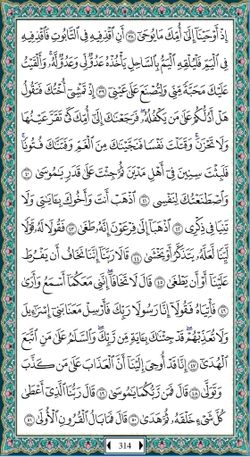 إِذْ أَوْحَيْنَا إِلَىٰ أُمِّكَ مَا يُوحَىٰ ٣٨ أَنِ ٱقْذِفِيهِ فِي ٱلتَّابُوتِ فَٱقْذِفِيهِ
فِي ٱلْيَمِّ فَلْيُلْقِهِ ٱلْيَمُّ بِٱلسَّاحِلِ يَأْخُذْهُ عَدُوٌّ لِّي وَعَدُوٌّ لَّهُۥ ۚ وَأَلْقَيْتُ
عَلَيْكَ مَحَبَّةً مِّنِّي وَلِتُصْنَعَ عَلَىٰ عَيْنِيٓ ٣٩ إِذْ تَمْشِيٓ أُخْتُكَ فَتَقُولُ
هَلْ أَدُلُّكُمْ عَلَىٰ مَن يَكْفُلُهُۥ ۖ فَرَجَعْنَٰكَ إِلَىٰٓ أُمِّكَ كَيْ تَقَرَّ عَيْنُهَا
وَلَا تَحْزَنَ ۚ وَقَتَلْتَ نَفْسًا فَنَجَّيْنَٰكَ مِنَ ٱلْغَمِّ وَفَتَنَّٰكَ فُتُونًا ۚ
فَلَبِثْتَ سِنِينَ فِيٓ أَهْلِ مَدْيَنَ ثُمَّ جِئْتَ عَلَىٰ قَدَرٍ يَٰمُوسَىٰ ٤٠
وَٱصْطَنَعْتُكَ لِنَفْسِي ٤١ ٱذْهَبْ أَنتَ وَأَخُوكَ بِـَٔايَٰتِي وَلَا
تَنِيَا فِي ذِكْرِي ٤٢ ٱذْهَبَآ إِلَىٰ فِرْعَوْنَ إِنَّهُۥ طَغَىٰ ٤٣ فَقُولَا لَهُۥ قَوْلًا
لَّيِّنًا لَّعَلَّهُۥ يَتَذَكَّرُ أَوْ يَخْشَىٰ ٤٤ قَالَا رَبَّنَآ إِنَّنَا نَخَافُ أَن يَفْرُطَ
عَلَيْنَآ أَوْ أَن يَطْغَىٰ ٤٥ قَالَ لَا تَخَافَآ ۖ إِنَّنِي مَعَكُمَآ أَسْمَعُ وَأَرَىٰ
٤٦ فَأْتِيَاهُ فَقُولَآ إِنَّا رَسُولَا رَبِّكَ فَأَرْسِلْ مَعَنَا بَنِيٓ إِسْرَٰٓءِيلَ
وَلَا تُعَذِّبْهُمْ ۖ قَدْ جِئْنَٰكَ بِـَٔايَةٍ مِّن رَّبِّكَ ۖ وَٱلسَّلَٰمُ عَلَىٰ مَنِ ٱتَّبَعَ
ٱلْهُدَىٰٓ ٤٧ إِنَّا قَدْ أُوحِيَ إِلَيْنَآ أَنَّ ٱلْعَذَابَ عَلَىٰ مَن كَذَّبَ
وَتَوَلَّىٰ ٤٨ قَالَ فَمَن رَّبُّكُمَا يَٰمُوسَىٰ ٤٩ قَالَ رَبُّنَا ٱلَّذِيٓ أَعْطَىٰ
كُلَّ شَيْءٍ خَلْقَهُۥ ثُمَّ هَدَىٰ ٥٠ قَالَ فَمَا بَالُ ٱلْقُرُونِ ٱلْأُولَىٰ ٥١
314